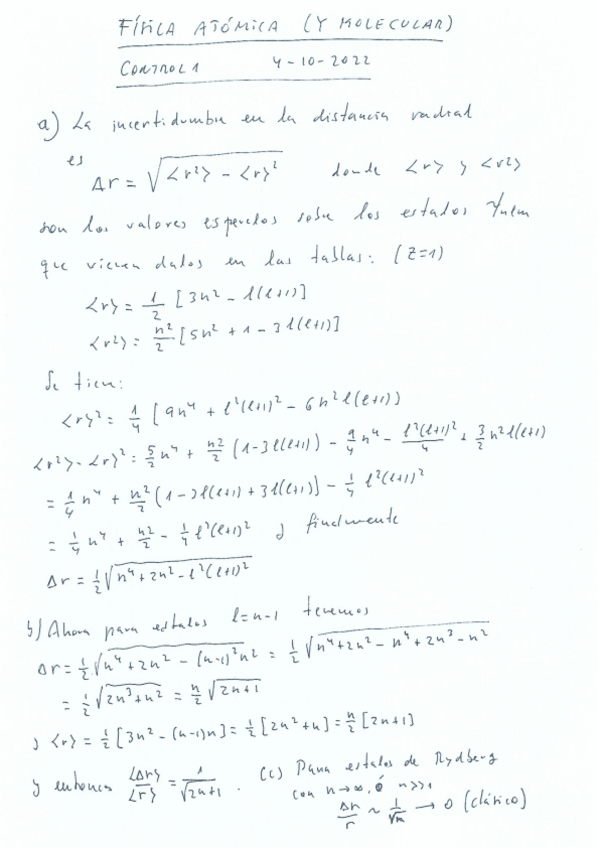 FÍSICA ATÓMICA (Y MOLECULAR)
CONTROL 1 4-10-2022
a) La incertidumbre en la distancia radial
es Δr = √(<r²> - <r>²) donde <r> y <r²>
son los valores esperados sobre los estados Ψnlm
que vienen dados en las tablas: (Z=1)
<r> = 1/2 [3n² - l(l+1)]
<r²> = n²/2 [5n² + 1 - 3l(l+1)]
Se tiene:
<r>² = 1/4 [9n⁴ + l²(l+1)² - 6n²l(l+1)]
<r²> - <r>² = 5/2 n⁴ + n²/2 (1-3l(l+1)) - 9/4 n⁴ - l²(l+1)²/4 + 3/2 n²l(l+1)
= 1/4 n⁴ + n²/2 (1-3l(l+1) + 3l(l+1)] - 1/4 l²(l+1)²
= 1/4 n⁴ + n²/2 - 1/4 l²(l+1)² y finalmente
Δr = 1/2 √(n⁴ + 2n² - l²(l+1)²)
b) Ahora para estados l=n-1 tenemos
Δr = 1/2 √(n⁴ + 2n² - (n-1)²n²) = 1/2 √(n⁴ + 2n² - n⁴ + 2n³ - n²)
= 1/2 √(2n³ + n²) = n/2 √(2n+1)
y <r> = 1/2 [3n² - (n-1)n] = 1/2 [2n² + n] = n/2 [2n+1]
y entonces <Δr>/<r> = 1/√(2n+1) .
(c) Para estados de Rydberg
con n→∞, ó n>>1
Δr/r ~ 1/√n → 0 (clásico)